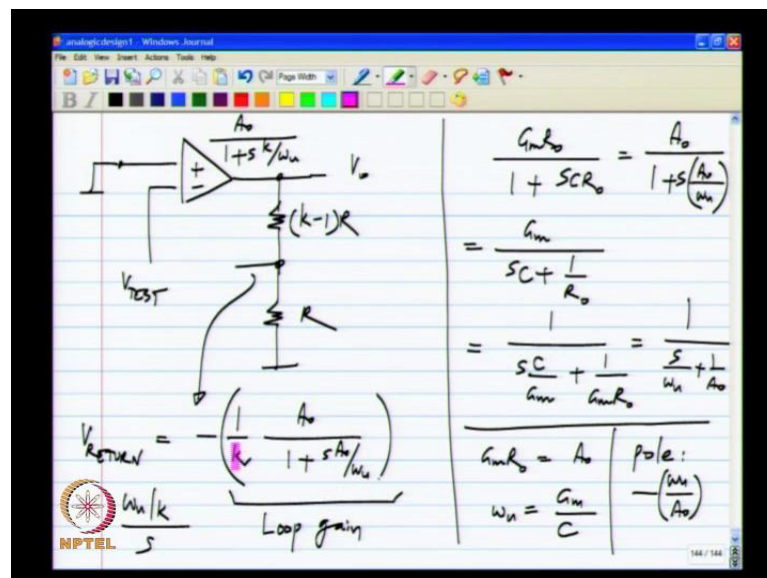 analogicdesign1 - Windows Journal
File Edit View Insert Actions Tools Help
Page Width
B I
A₀
1 + s k/ωu
+
-
V₀
(k-1)R
R
V_TEST
V_RETURN = -( 1/k A₀/(1 + s A₀/ωu) )
Loop gain
ωu/k
s
GmR₀/(1 + SCR₀) = A₀/(1 + s(A₀/ωu))
= Gm/(SC + 1/R₀)
= 1/(s C/Gm + 1/(GmR₀)) = 1/(s/ωu + 1/A₀)
GmR₀ = A₀
ωu = Gm/C
pole:
-(ωu/A₀)
NPTEL
144 / 144